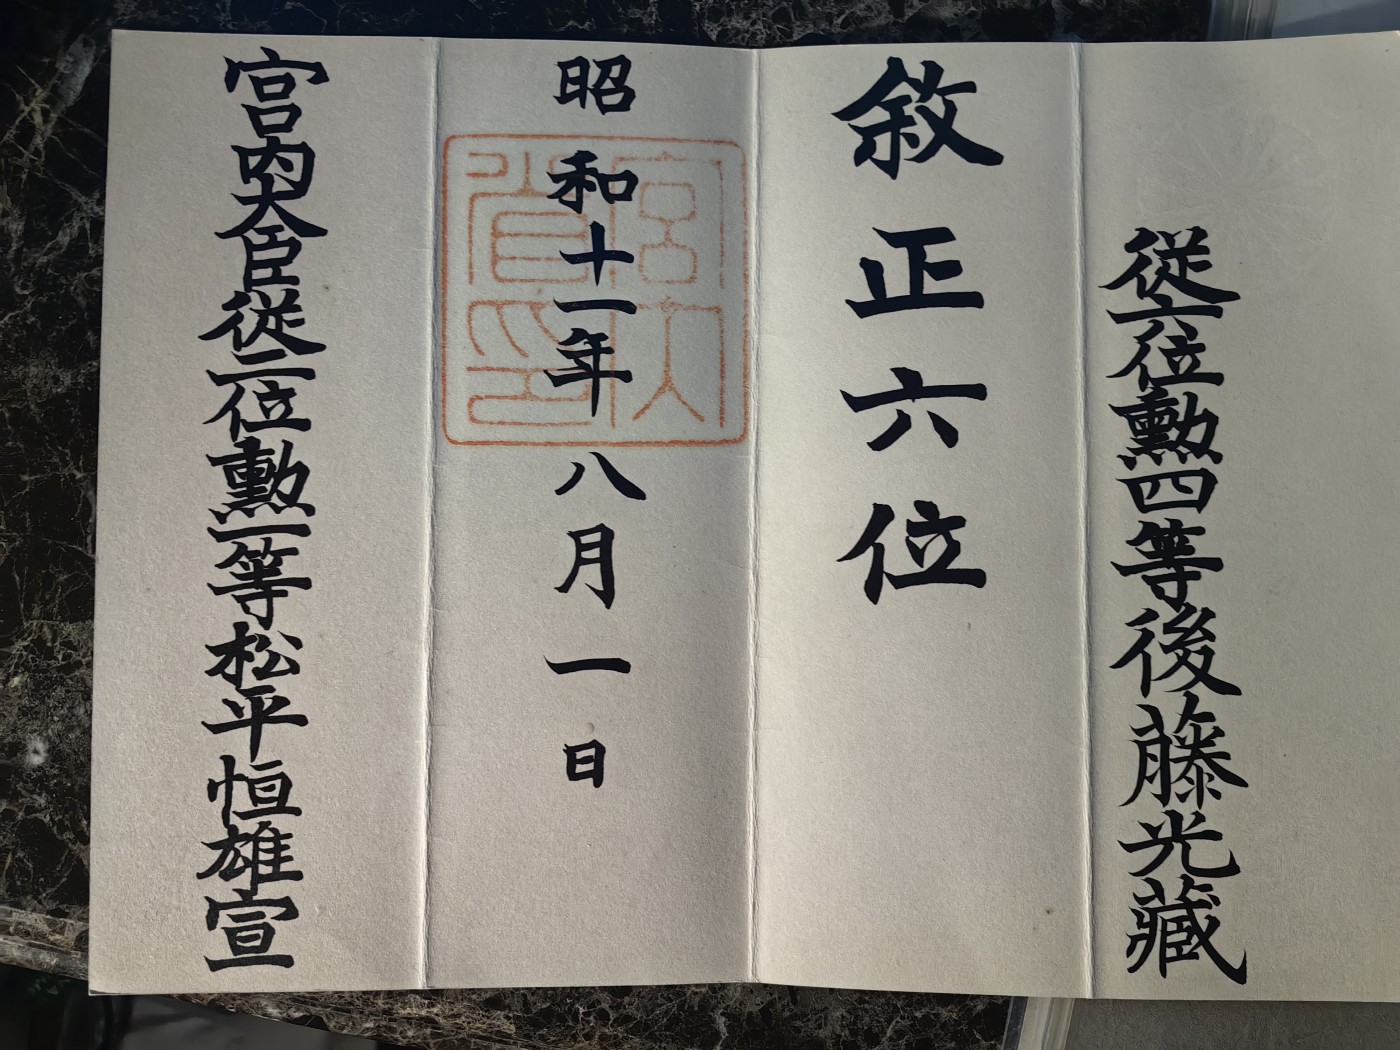 從六位勲四等後藤光藏
敘正六位
昭和十一年八月一日
宮内大臣從二位勲一等松平恒雄宣
宮内
省印